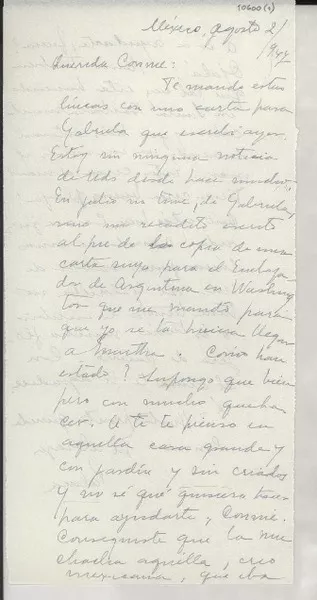 10600 (1)
México, agosto 2/
1947
Querida Connie:
Te mando estas
líneas con una carta para
Gabriela que escribí ayer.
Estoy sin ninguna noticia
de Uds desde hace mucho.
En julio no tuve de Gabriela,
sino un recadito escrito
al pie de la copia de una
carta suya para el Embaja-
dor de Argentina en Washing-
ton que me mandó para
que yo se la hiciera llegar
a Martha. Cómo han
estado? Supongo que bien
pero con mucho queha-
cer. A ti te pienso en
aquella casa grande y
con jardín y sin criados
y no sé qué quisiera hacer
para ayudarte, Connie.
Conseguiste que la mu-
chacha aquélla, creo
mexicana, que iba